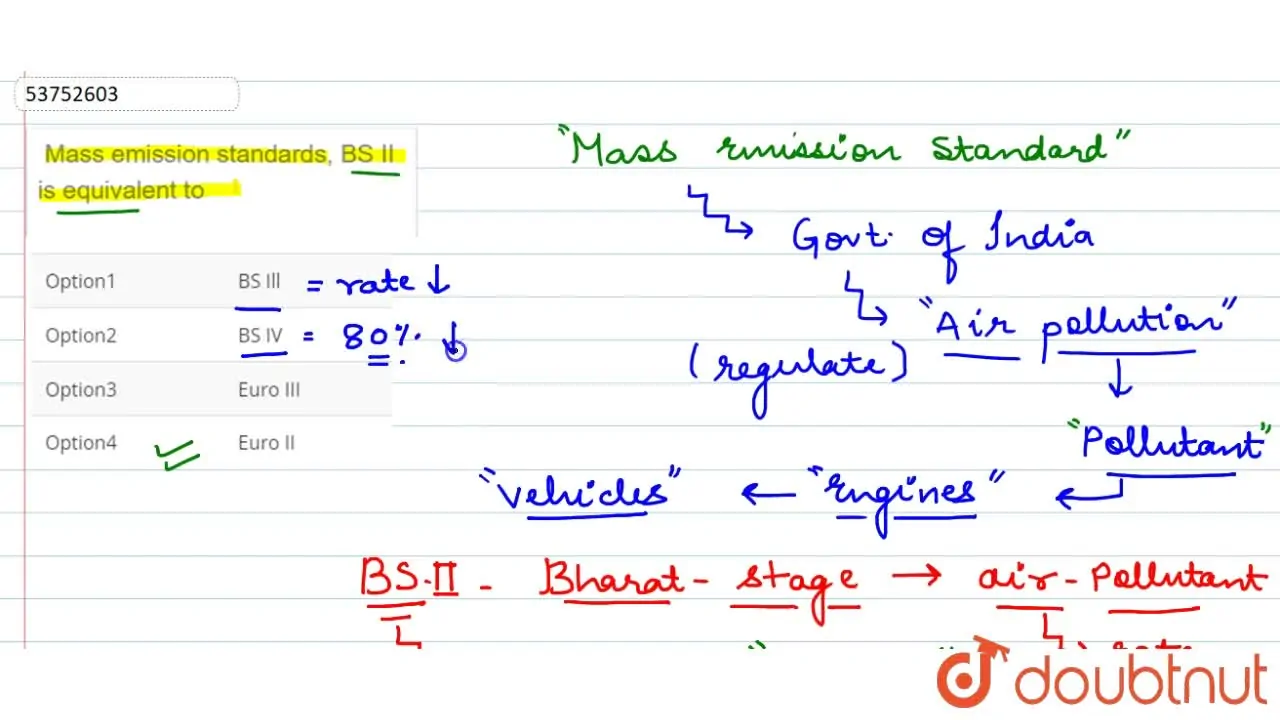 53752603
Mass emission standards, BS II
is equivalent to
Option1 BS III = rate ↓
Option2 BS IV = 80% ↓
Option3 Euro III
Option4 Euro II
"Mass Emission Standard"
Govt. of India
"Air pollution"
(regulate)
"Pollutant"
"Vehicles" ← "Engines"
BS-II - Bharat - stage → air - Pollutant
doubtnut